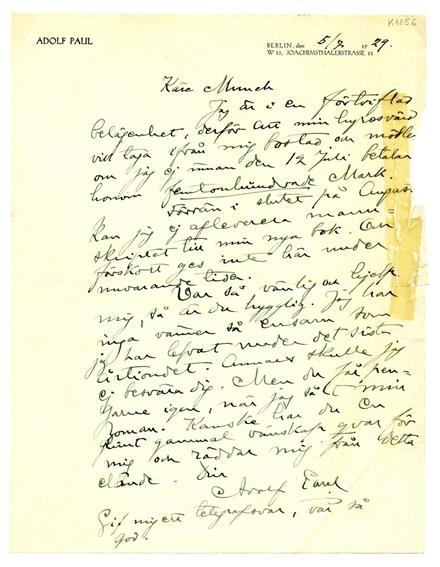 K1856
ADOLF PAUL
BERLIN, den 5/7. 1929.
W 15, JOACHIMSTHALERSTRASSE 11
Käre Munch
Jag är i en förtviflad
belägenhet, derför att min hyresvärd
vill taga ifrån mig bostad och möbler
om jag ej innan den 12 Juli betalar
honom femtonhundrade Mark.
Förrän i slutet på Augus.
kan jag ej afleverera manu-
skriptet till min nya bok. Och
förskott ges inte här under
nuvarande tider.
Var så vänlig och hjelp
mig, så är du hygglig. Jag har
inga vänner så ensam som
jag har lefvat under det sista
årtiondet. Annars skulle jag
ej besvära dig. Men du får pen-
garne igen, när jag sålt min
roman. Kanske har du en
gammal vänskap qvar för
mig och räddar mig från detta
elände. Din
Adolf Paul
Gif mig ett telegrafsvar, var så
god.